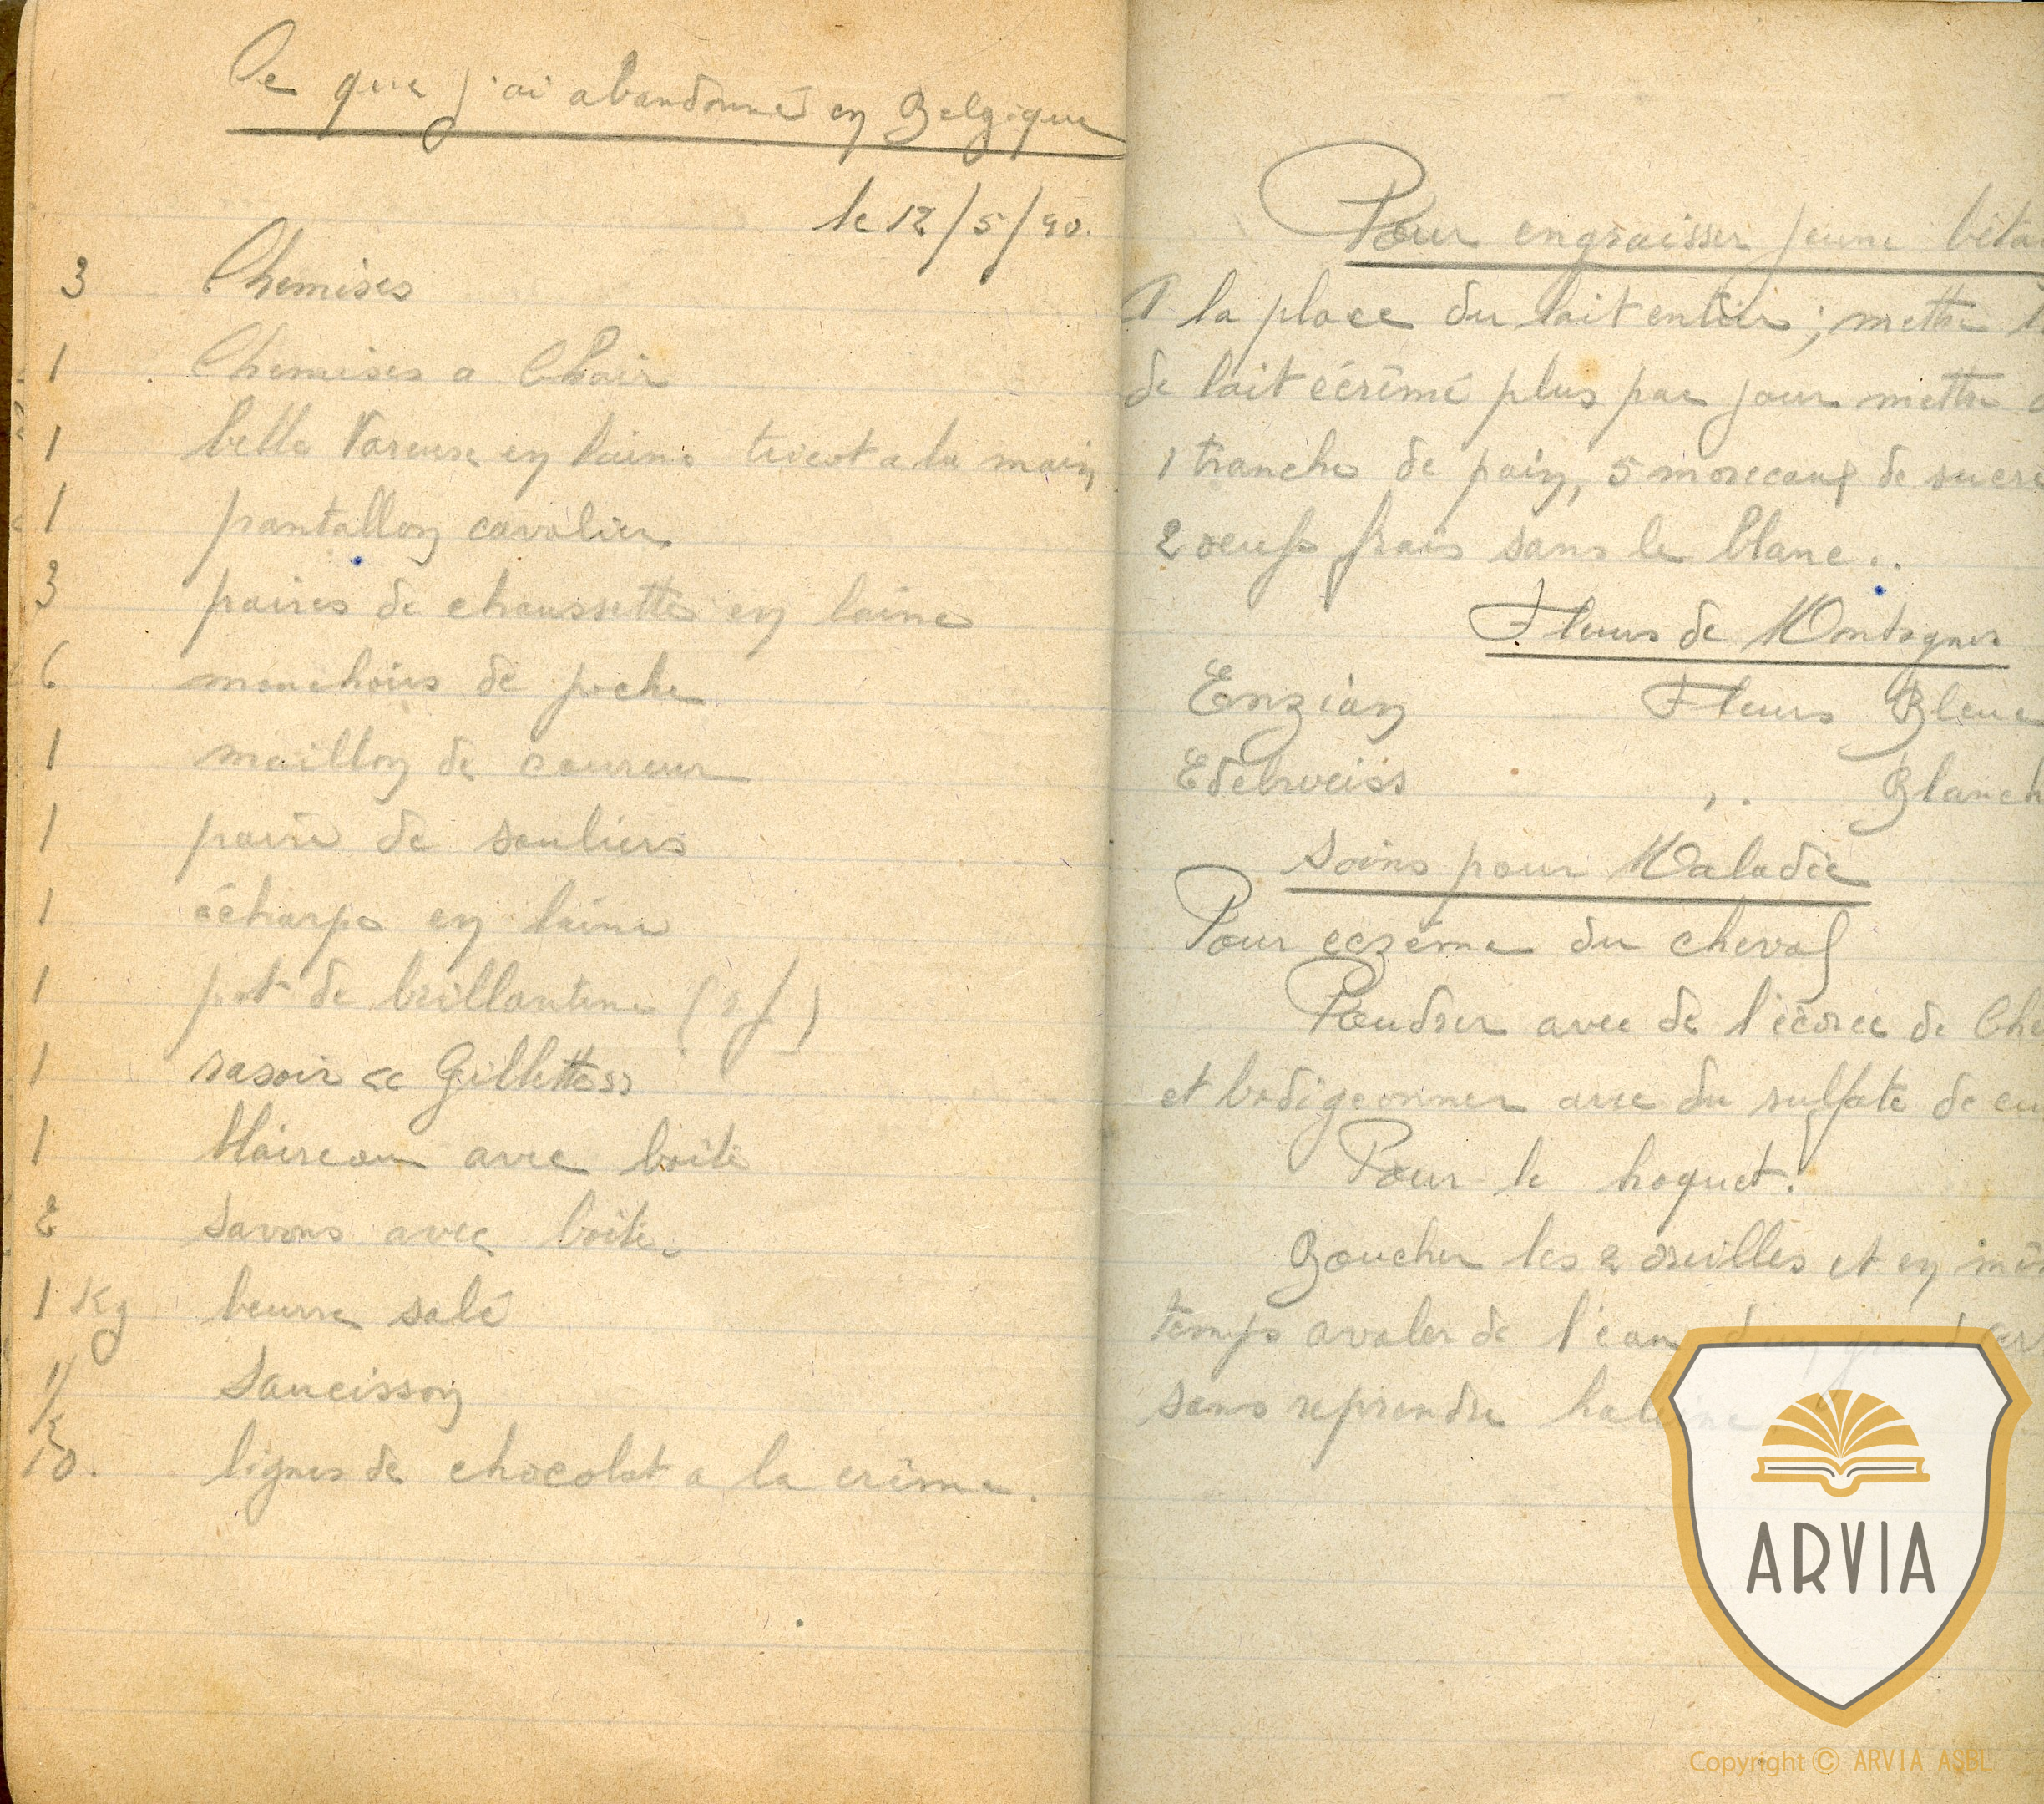 Ce que j'ai abandonné en Belgique
le 12/5/40.
3 Chemises
1 Chemises a Chair
1 belle Vareuse en laine tricot a la main
1 pantallon cavalier
3 paires de chaussettes en laine
6 mouchoirs de poche
1 maillon de coureur
1 paire de souliers
1 écharpe en laine
1 pot de brillantine
1 rasoir << Gillette >>
1 blaireau avec boite
2 savons avec boite
1 Kg beurre salé
1/2 Saucisson
10. lignes de chocolat a la crême.
Pour engraisser jeune béta
A la place du lait entier; mettre
de lait écrémé plus par jour mettre
1 tranche de pain, 5 morceaux de sucre
2 oeufs frais sans le blanc..
Fleurs de Montagnes
Enzian Fleurs Bleue
Edelweiss ,, Blanch
Soins pour Maladie
Pour eczéma du cheval
Poudrer avec de l'écorce de Chê
et badigeonner avec du sulfate de cu
Pour le hoquet.
Boucher les 2 oreilles et en mêm
temps avaler de l'eau d'un grand ver
sans reprendre haleine
ARVIA
Copyright © ARVIA ASBL